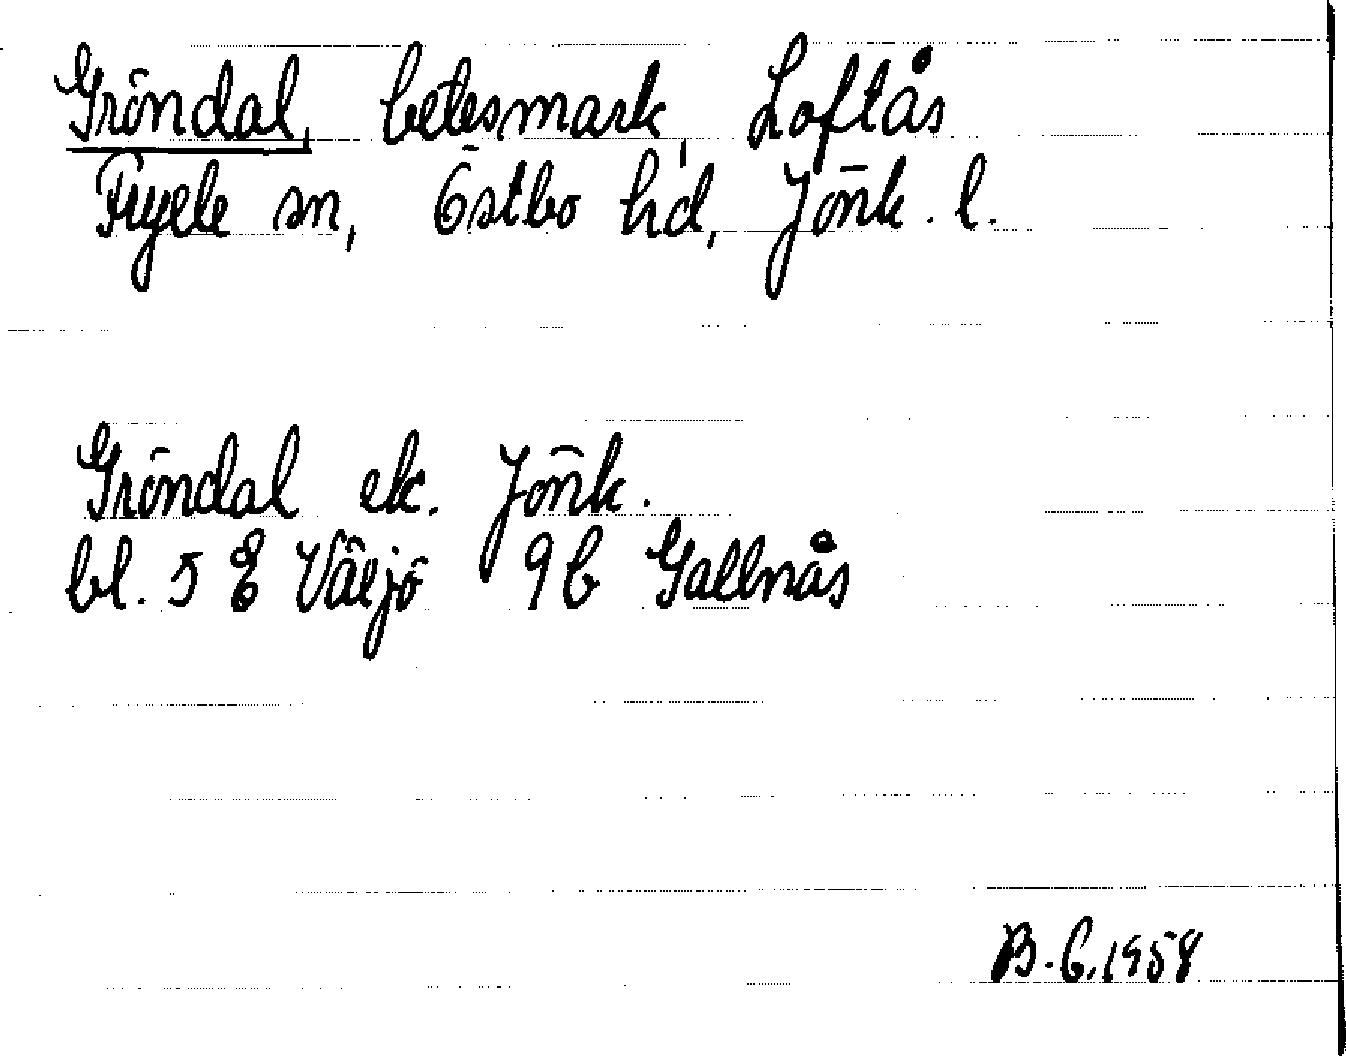 Gröndal, betesmark, Loftås
Fryele sn, Östbo hd, Jönk. l.
Gröndal ek. Jönk.
bl. 5 E Växjö 9b Gallnås
B.C. 1958